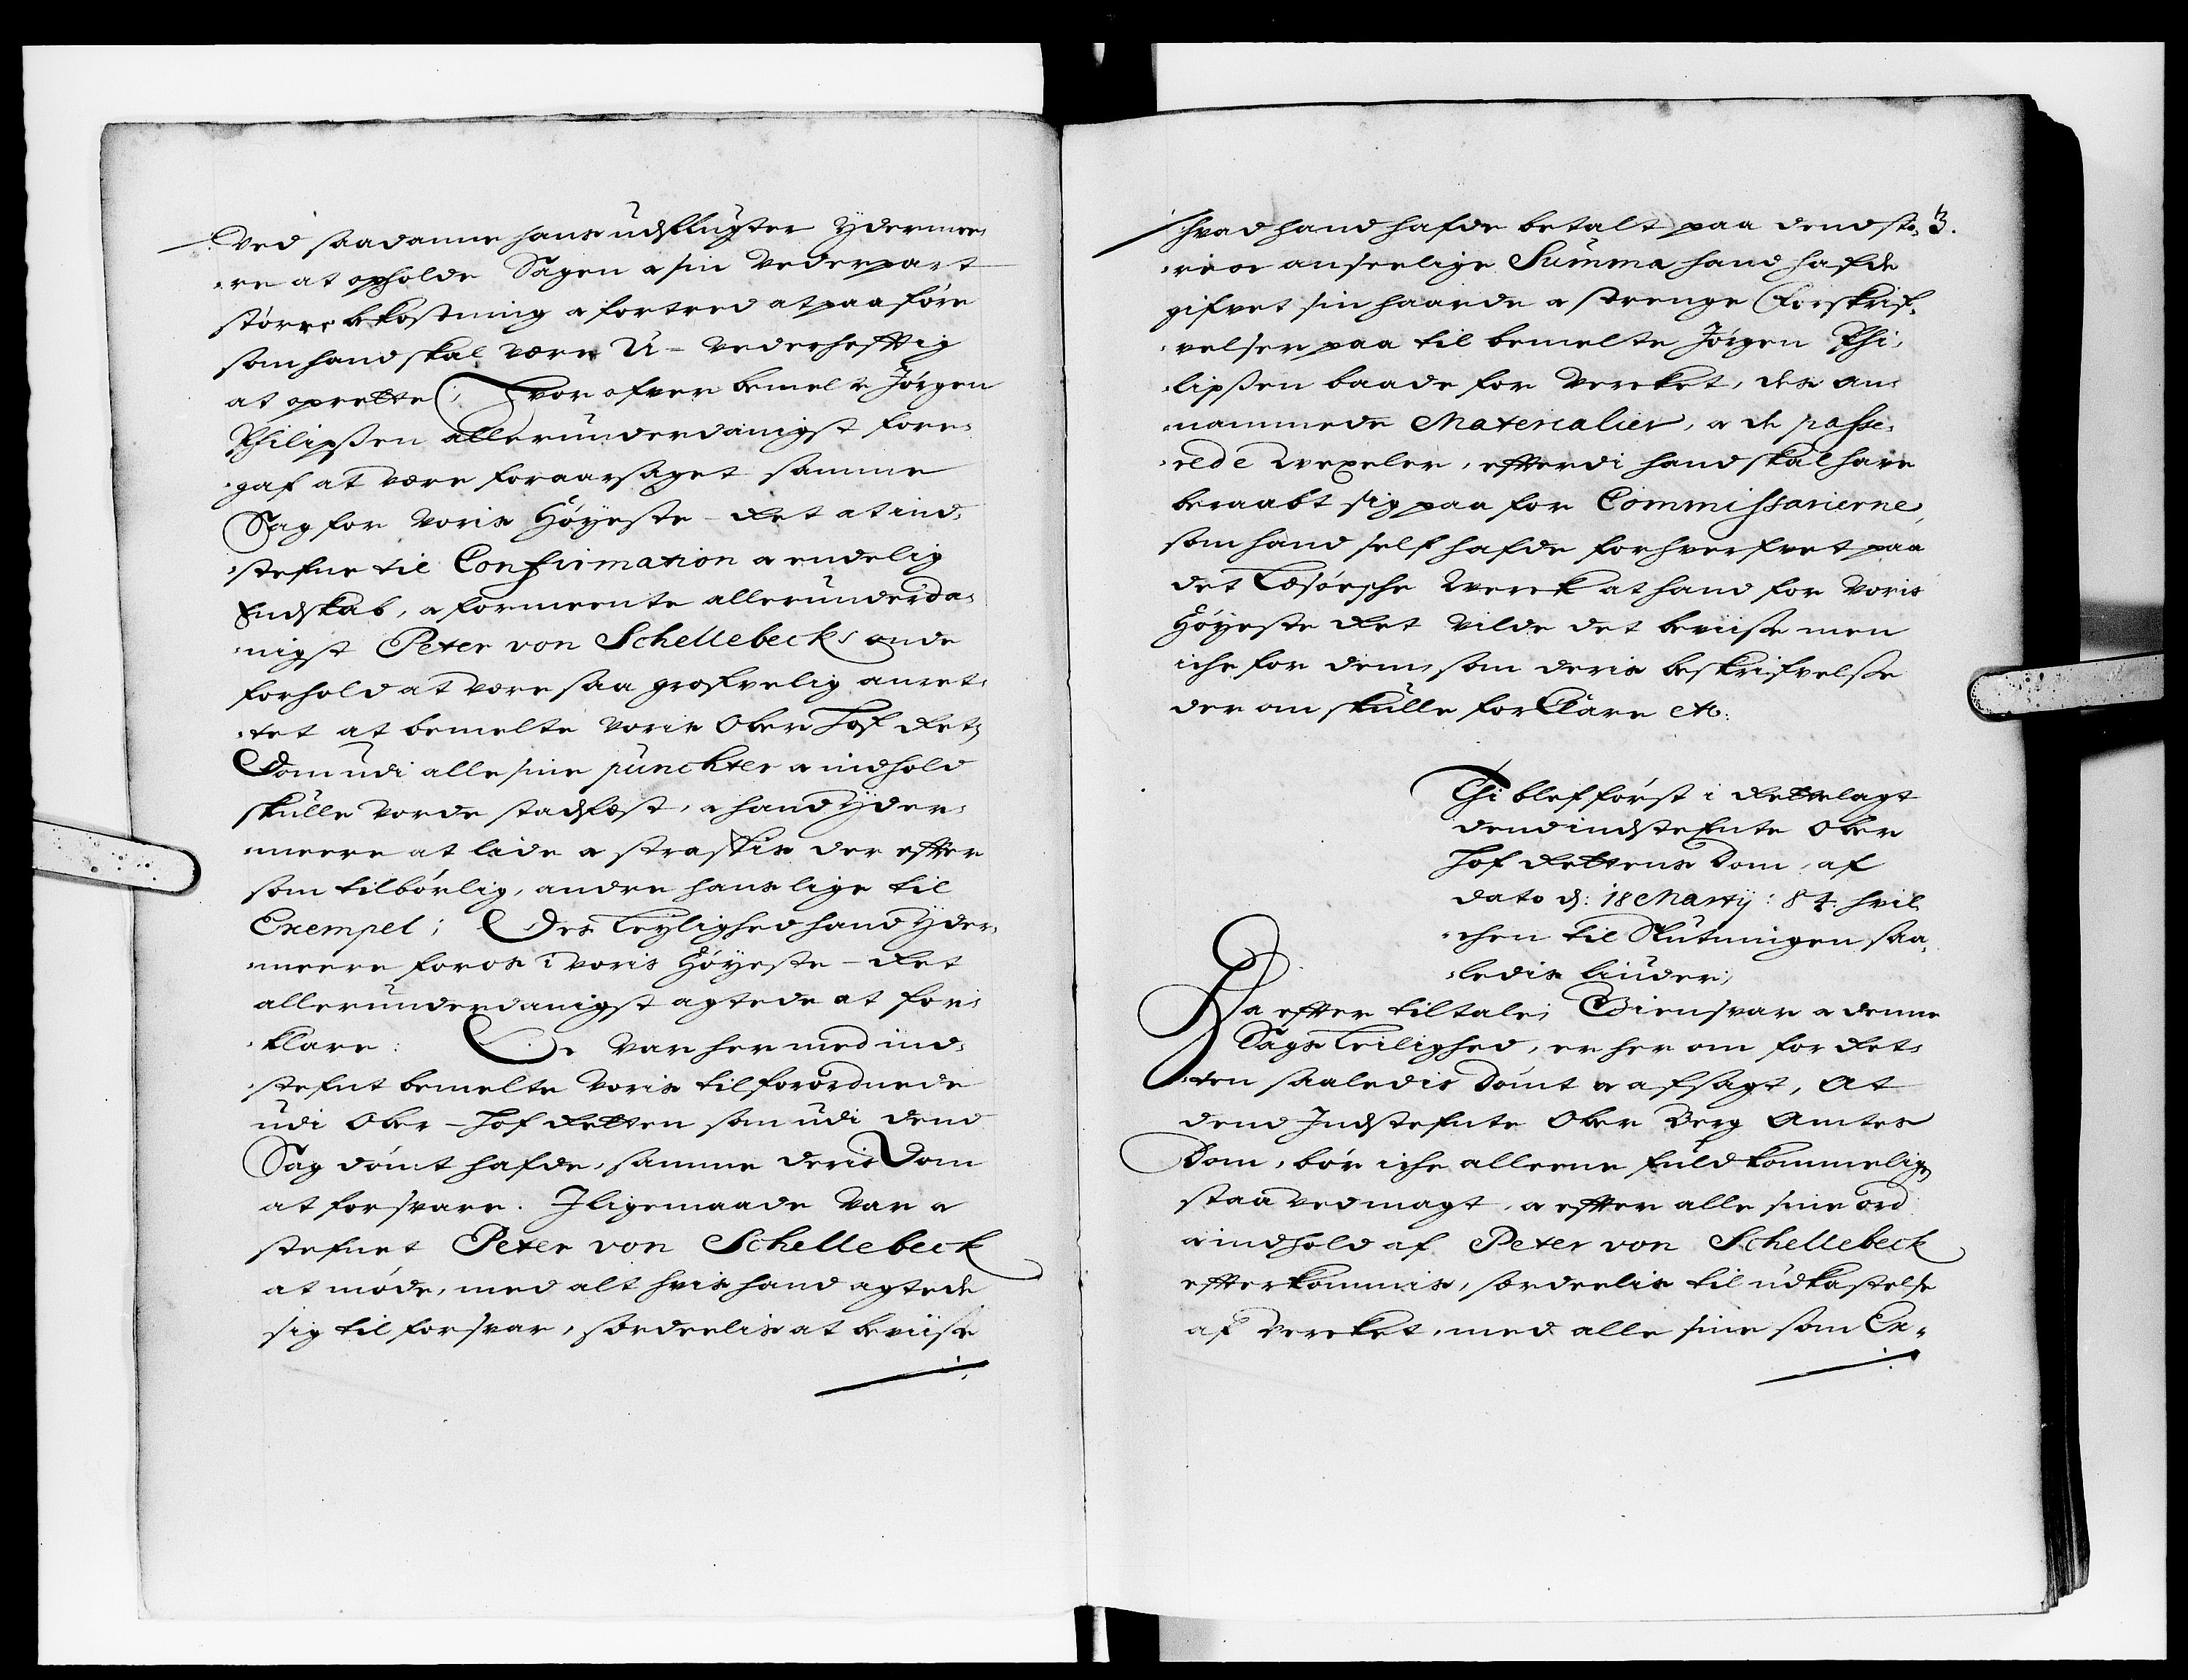 Ved saadanne hans udflugter ydermee¬
re at opholde Sagen & sin Vederpart
større bekostning & fortred at paaføre
som hand skal være U-vederhefftig
at oprette; Hvorofver bemelte Jørgen
Philipßen allerunderdanigst fore¬
gaf at være foraarsaget samme
Sag for Voris Høyeste-Ret at ind¬
stefne til Confirmation & endelig
Endskab, & formeente allerunderda¬
nigst Peter von Schellebecks onde
forhold at være saa grofvelig anret¬
tet at bemelte Voris Ober Hof Rets
Dom udi alle sine puncHter & indhold
skulle vorde stadfæst, & hand yder¬
meere at lide & straffis der effter
som tilbørlig, andre hans lige til
Exempel; Des Leylighed hand yder¬
meere for os i Voris Høyeste-Ret
allerunderdanigst agtede at for¬
klare: De var her med ind¬
stefnt bemelte Voris tilforordnede
udi Ober-Hof Retten som udi dend
Sag dømt hafde, samme deris Dom
at forsvare. Iligemaade var &
stefnet Peter von Schellebeck
at møde, med alt hvis hand agtede
sig til forsvar, særdeelis at beviise
hvad hand hafde betalt paa dend sto¬ 3.
re & anseelige Summa hand hafde
gifvet sin haarde & strenge Forskrif¬
velser paa til bemelte Jørgen Phi¬
lipßen baade for Vercket, des an¬
nammede Materialier, & de passe¬
rede Wexeler, efterdi hand skal have
beraabt sig paa for Commissarierne,
som hand self hafde forhverfvet paa
det Læsøesche Werck at hand for Voris
Høyeste Ret vilde det beviise men
iche for dem, som deris beskrifvelse
der om skulle forklare etc:
Thi blef først i Rettelagt
dend indstefnte Ober
Hof Rettens Dom, af
dato d: 18 Martij: 84. hvil¬
chen til Slutningen saa¬
ledis liuder;
Da effter tiltale, Giensvar & denne
Sags Leilighed, er her om for Ret¬
ten saaledis dømt & afsagt, At
dend Indstefnte Ober Berg Amtes
Dom, bør iche alleene fuldkommelig
staa ved magt, & effter alle sine ord
& indhold af Peter von Schellebeck
effterkommis, særdeelis til udkastelse
af Vercket, med alle sine som Ex¬